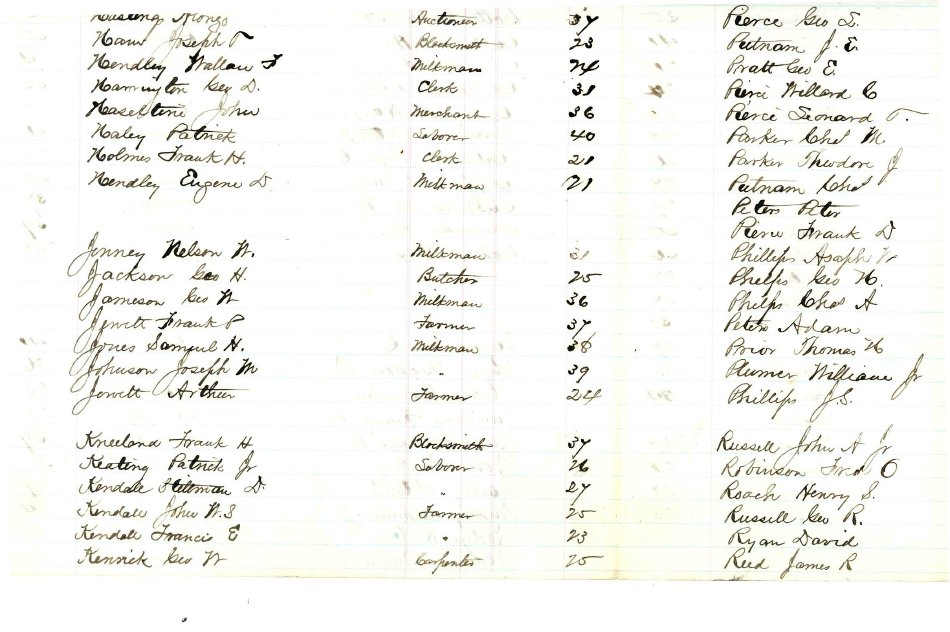 Hastings Alonzo Auctioneer 37 Pierce Geo S.
Joseph T Blacksmith 23 Putnam J. E.
Hendley Wallace F Milkman 24 Pratt Geo E.
Harrington Geo D. Clerk 31 Pierce Willard C
Haseltine John Merchant 36 Pierce Leonard T.
Haley Patrick Laborer 40 Parker Chas M
Holmes Frank H. Clerk 21 Parker Theodore J
Hendley Eugene D. Milkman 21 Putnam Chas
Peters Peter
Pierce Frank D
Jenney Nelson W. Milkman 31 Phillips Asaph
Jackson Geo H. Butcher 25 Phelps Geo H.
Jameson Geo W Milkman 36 Phelps Chas A
Jewett Frank P Farmer 37 Peters Adam
Jones Samuel H. Milkman 38 Prior Thomas H
Johnson Joseph M " 39 Plumer William Jr
Jewett Arthur Farmer 24 Phillips J.S.
Kneeland Frank H Blacksmith 37 Russell John A Jr
Keating Patrick Jr Laborer 26 Robinson Fred O
Kendall Stillman D. " 27 Roach Henry S.
Kendall John W.S Farmer 25 Russell Geo R.
Kendall Francis E " 23 Ryan David
Kenrick Geo W Carpenter 25 Reed James R